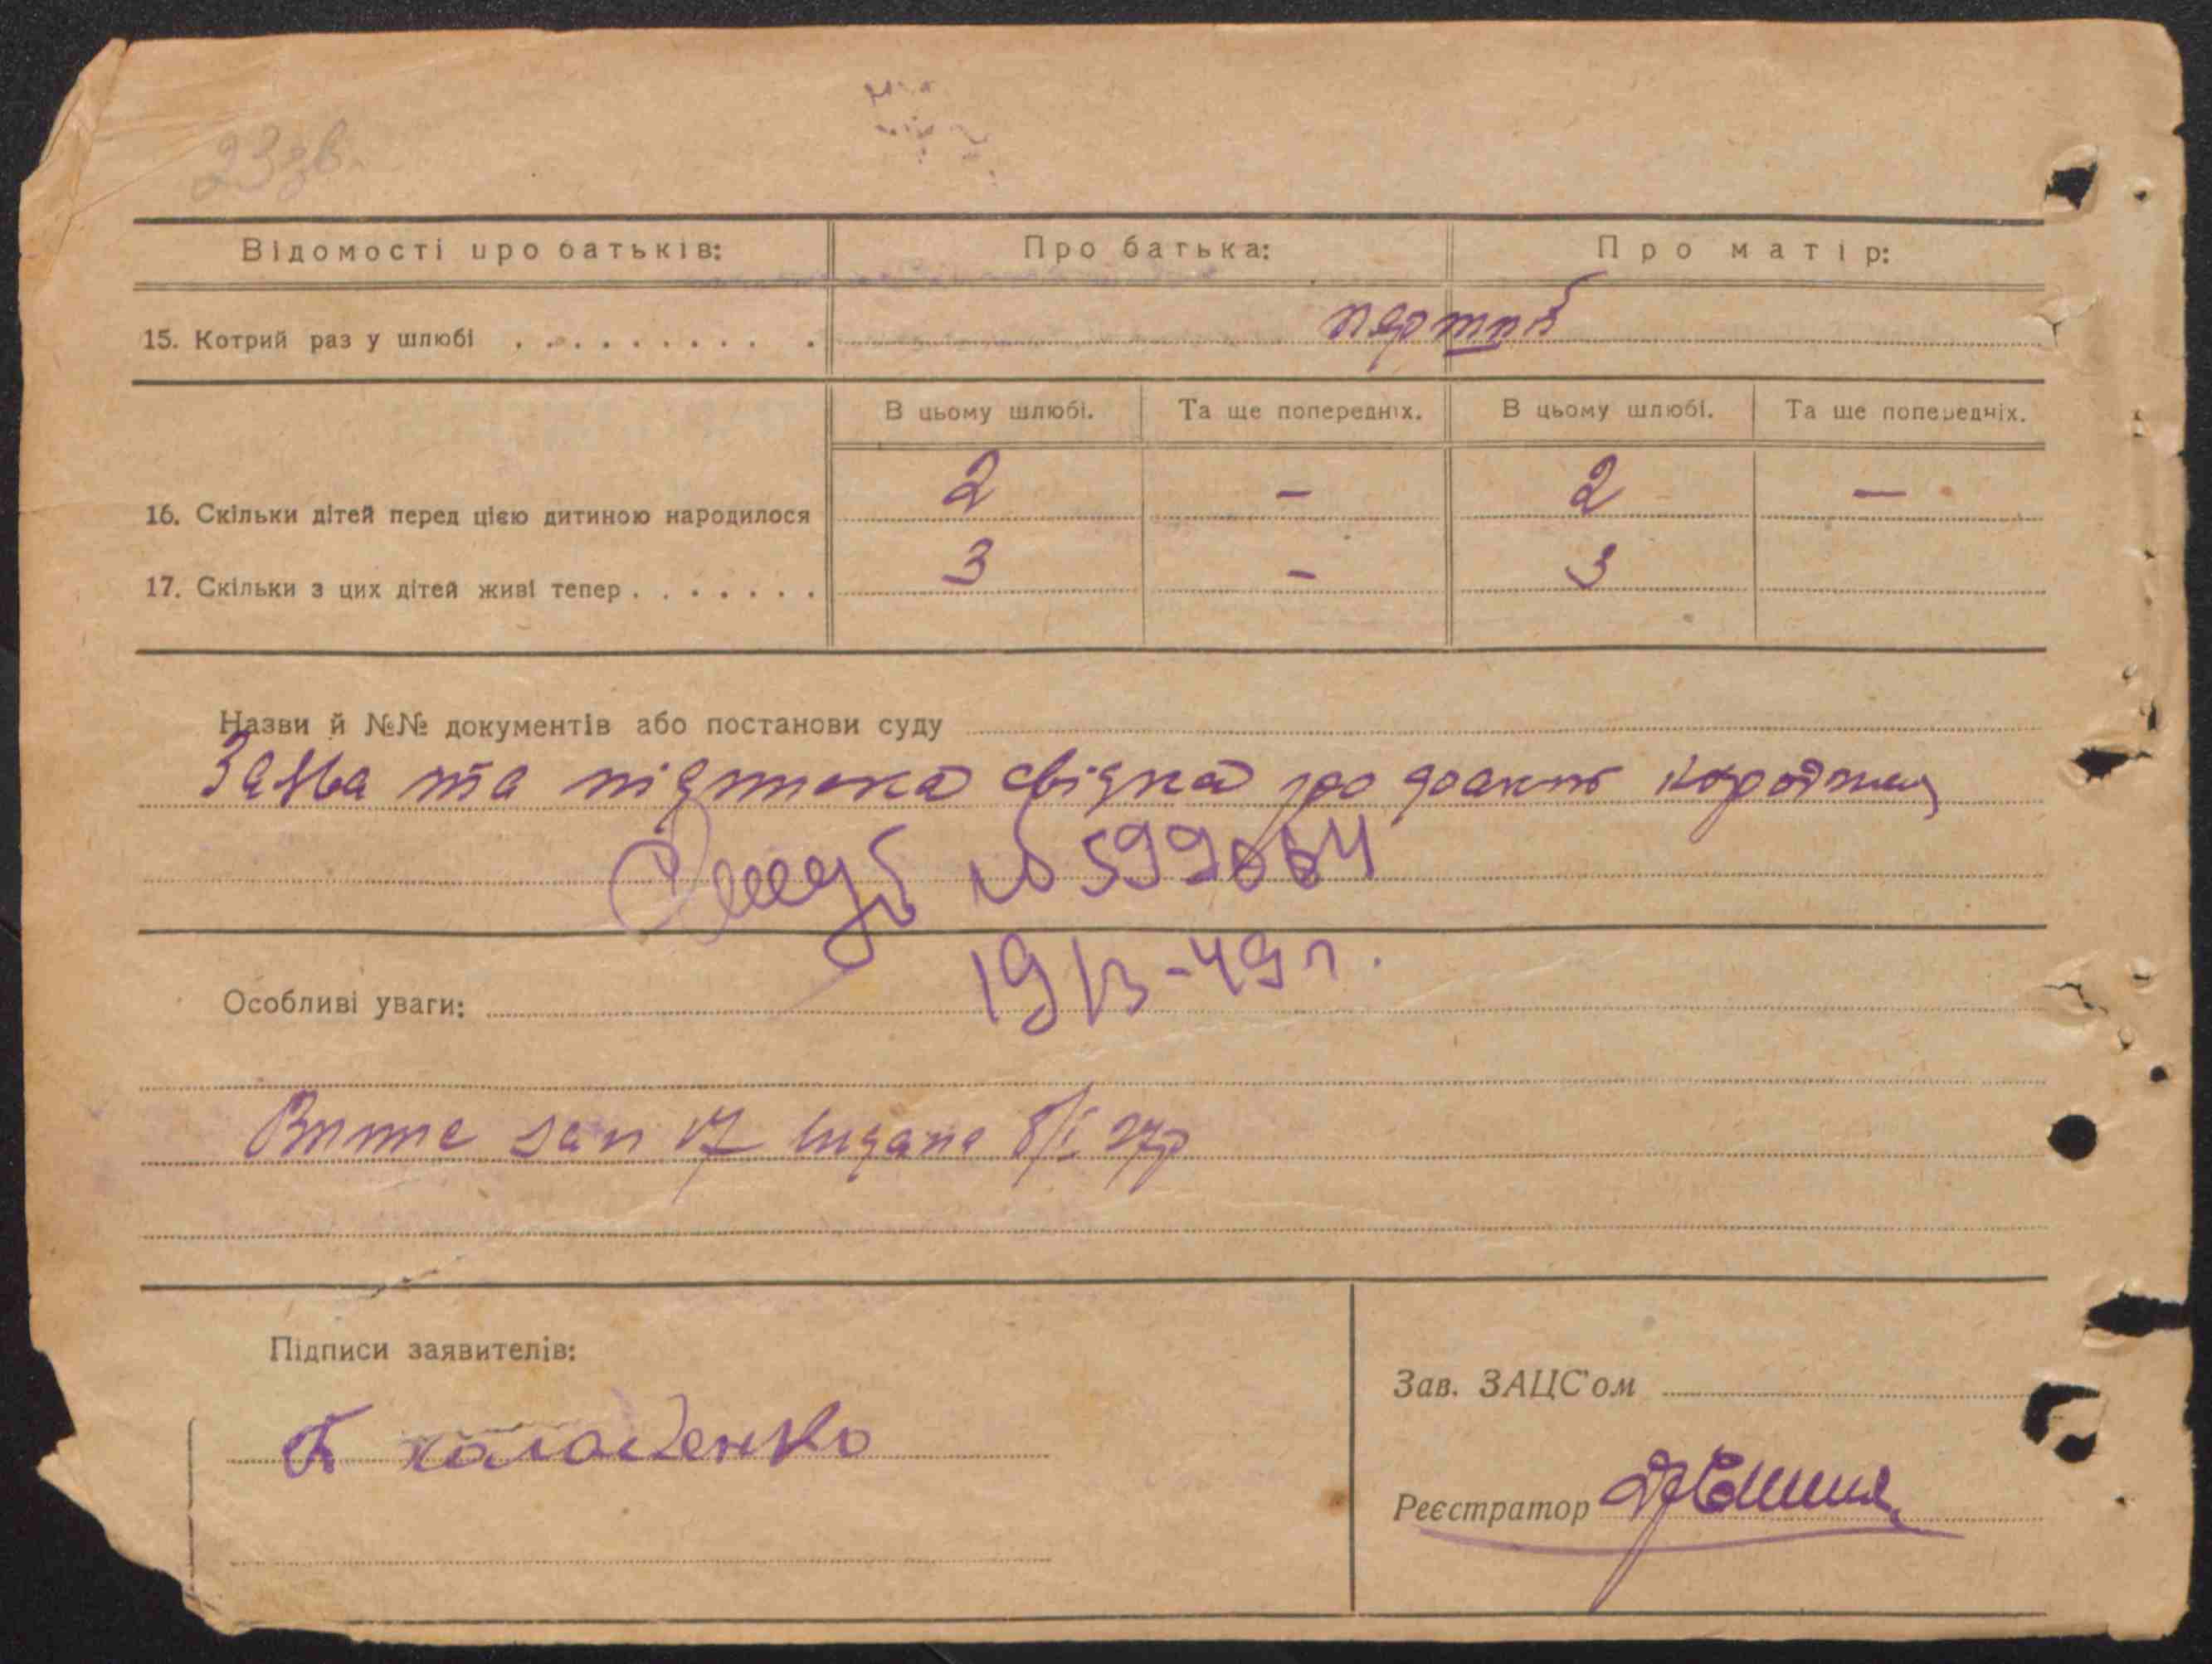 23 зв.
Відомості про батьків: Про батька: Про матір:
15. Котрий раз у шлюбі . . . . . . . . . . перший
В цьому шлюбі. Та ще попередніх. В цьому шлюбі. Та ще попередніх.
16. Скільки дітей перед цією дитиною народилося 2 – 2 –
17. Скільки з цих дітей живі тепер . . . . . . . 3 – 3
Назви й №№ документів або постанови суду
Заява та підписка свідка про
№ 599064
19/3-49 г.
Особливі уваги:
17 видано 8/І 27р
Підписи заявителів:
Зав. ЗАЦС'ом
Реєстратор